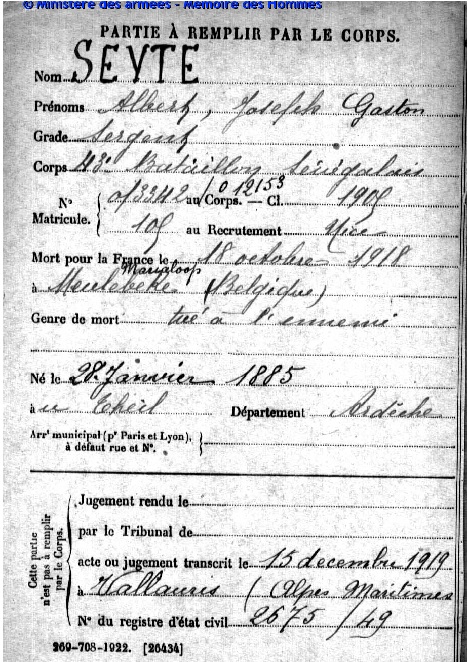 © Ministère des armées - Mémoire des Hommes
PARTIE À REMPLIR PAR LE CORPS.
Nom SEVTE
Prénoms Albert, Joseph Gaston
Grade Sergent
Corps 43e Bataillon Sénégalais
N° Matricule. { 013342 / 0 12153 au Corps. — Cl. 1905
105 au Recrutement Nice
Mort pour la France le 18 octobre 1918
Marialoop
à Meulebeke (Belgique)
Genre de mort tué à l'ennemi
Né le 28 Janvier 1885
à u Theil Département Ardèche
Arrt municipal (pr Paris et Lyon),
à défaut rue et N°.
Cette partie n'est pas à remplir par le Corps.
Jugement rendu le
par le Tribunal de
acte ou jugement transcrit le 15 decembre 1919
à Vallauris (Alpes Maritimes
N° du registre d'état civil 2675/49
269-708-1922. [26434]